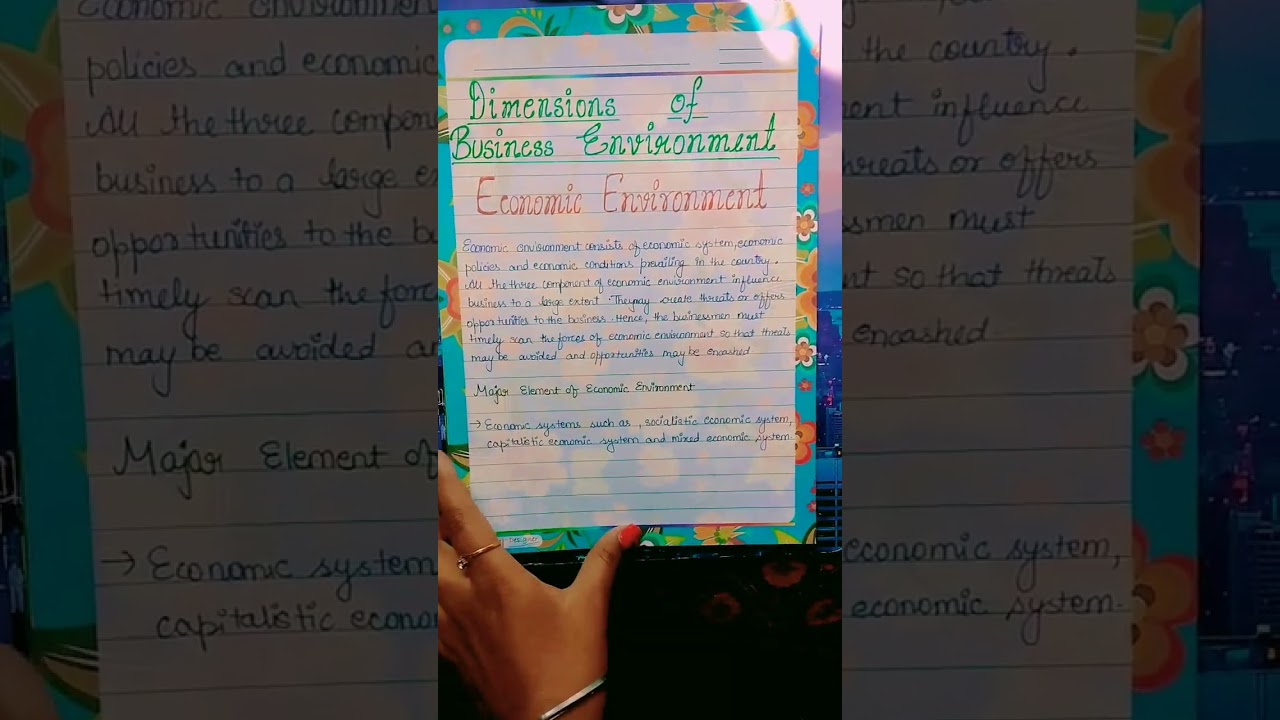 Dimensions of
Business Environment
Economic Environment
Economic environment consists of economic system, economic
policies and economic conditions prevailing in the country.
All the three component of economic environment influence
business to a large extent. They may create threats or offers
opportunities to the business. Hence, the businessmen must
timely scan the forces of economic environment so that threats
may be avoided and opportunities may be encashed
Major Element of Economic Environment
→ Economic systems such as, socialistic economic system,
capitalistic economic system and mixed economic system.
Designer